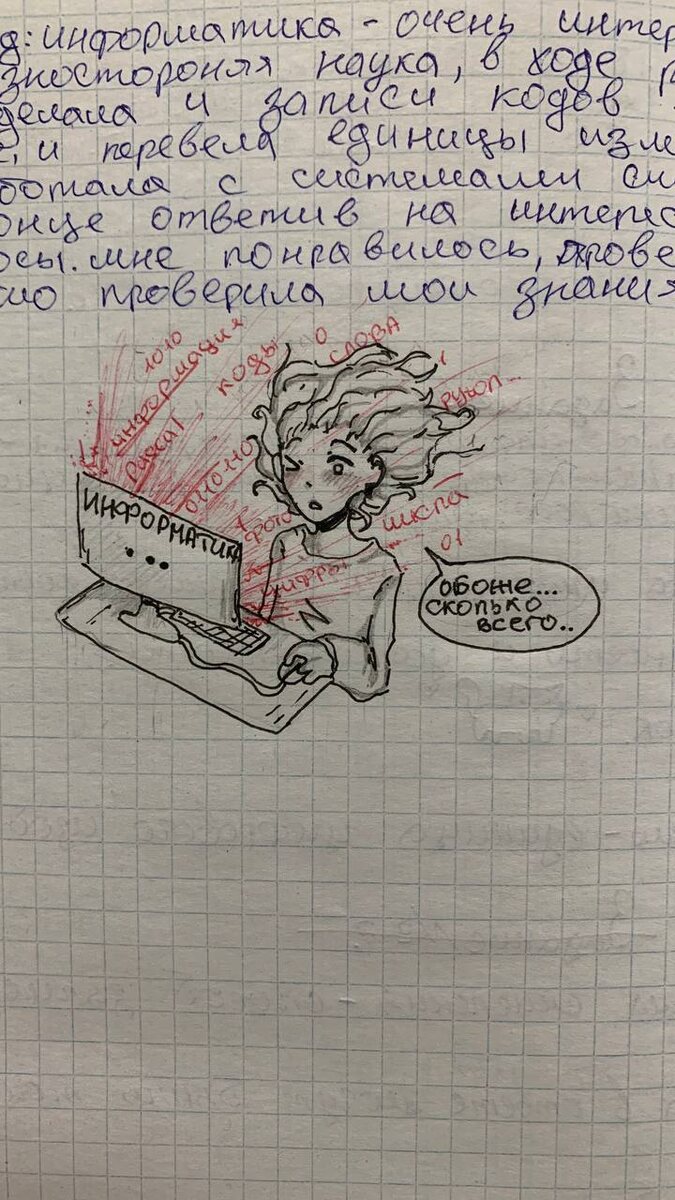 д: информатика - очень интер
зностороняя наука, в ходе р
делала и записи кодов
е, и перевела единицы изм
ботала с системами си
онце ответив на интерес
осы. мне понравилось, прове
мо проверила мои знания
1010
информация
коды
0
слова
1
pascal
0110110
фото
шифры
школа
01
ИНФОРМАТИК
...
обоже...
сколько
всего..